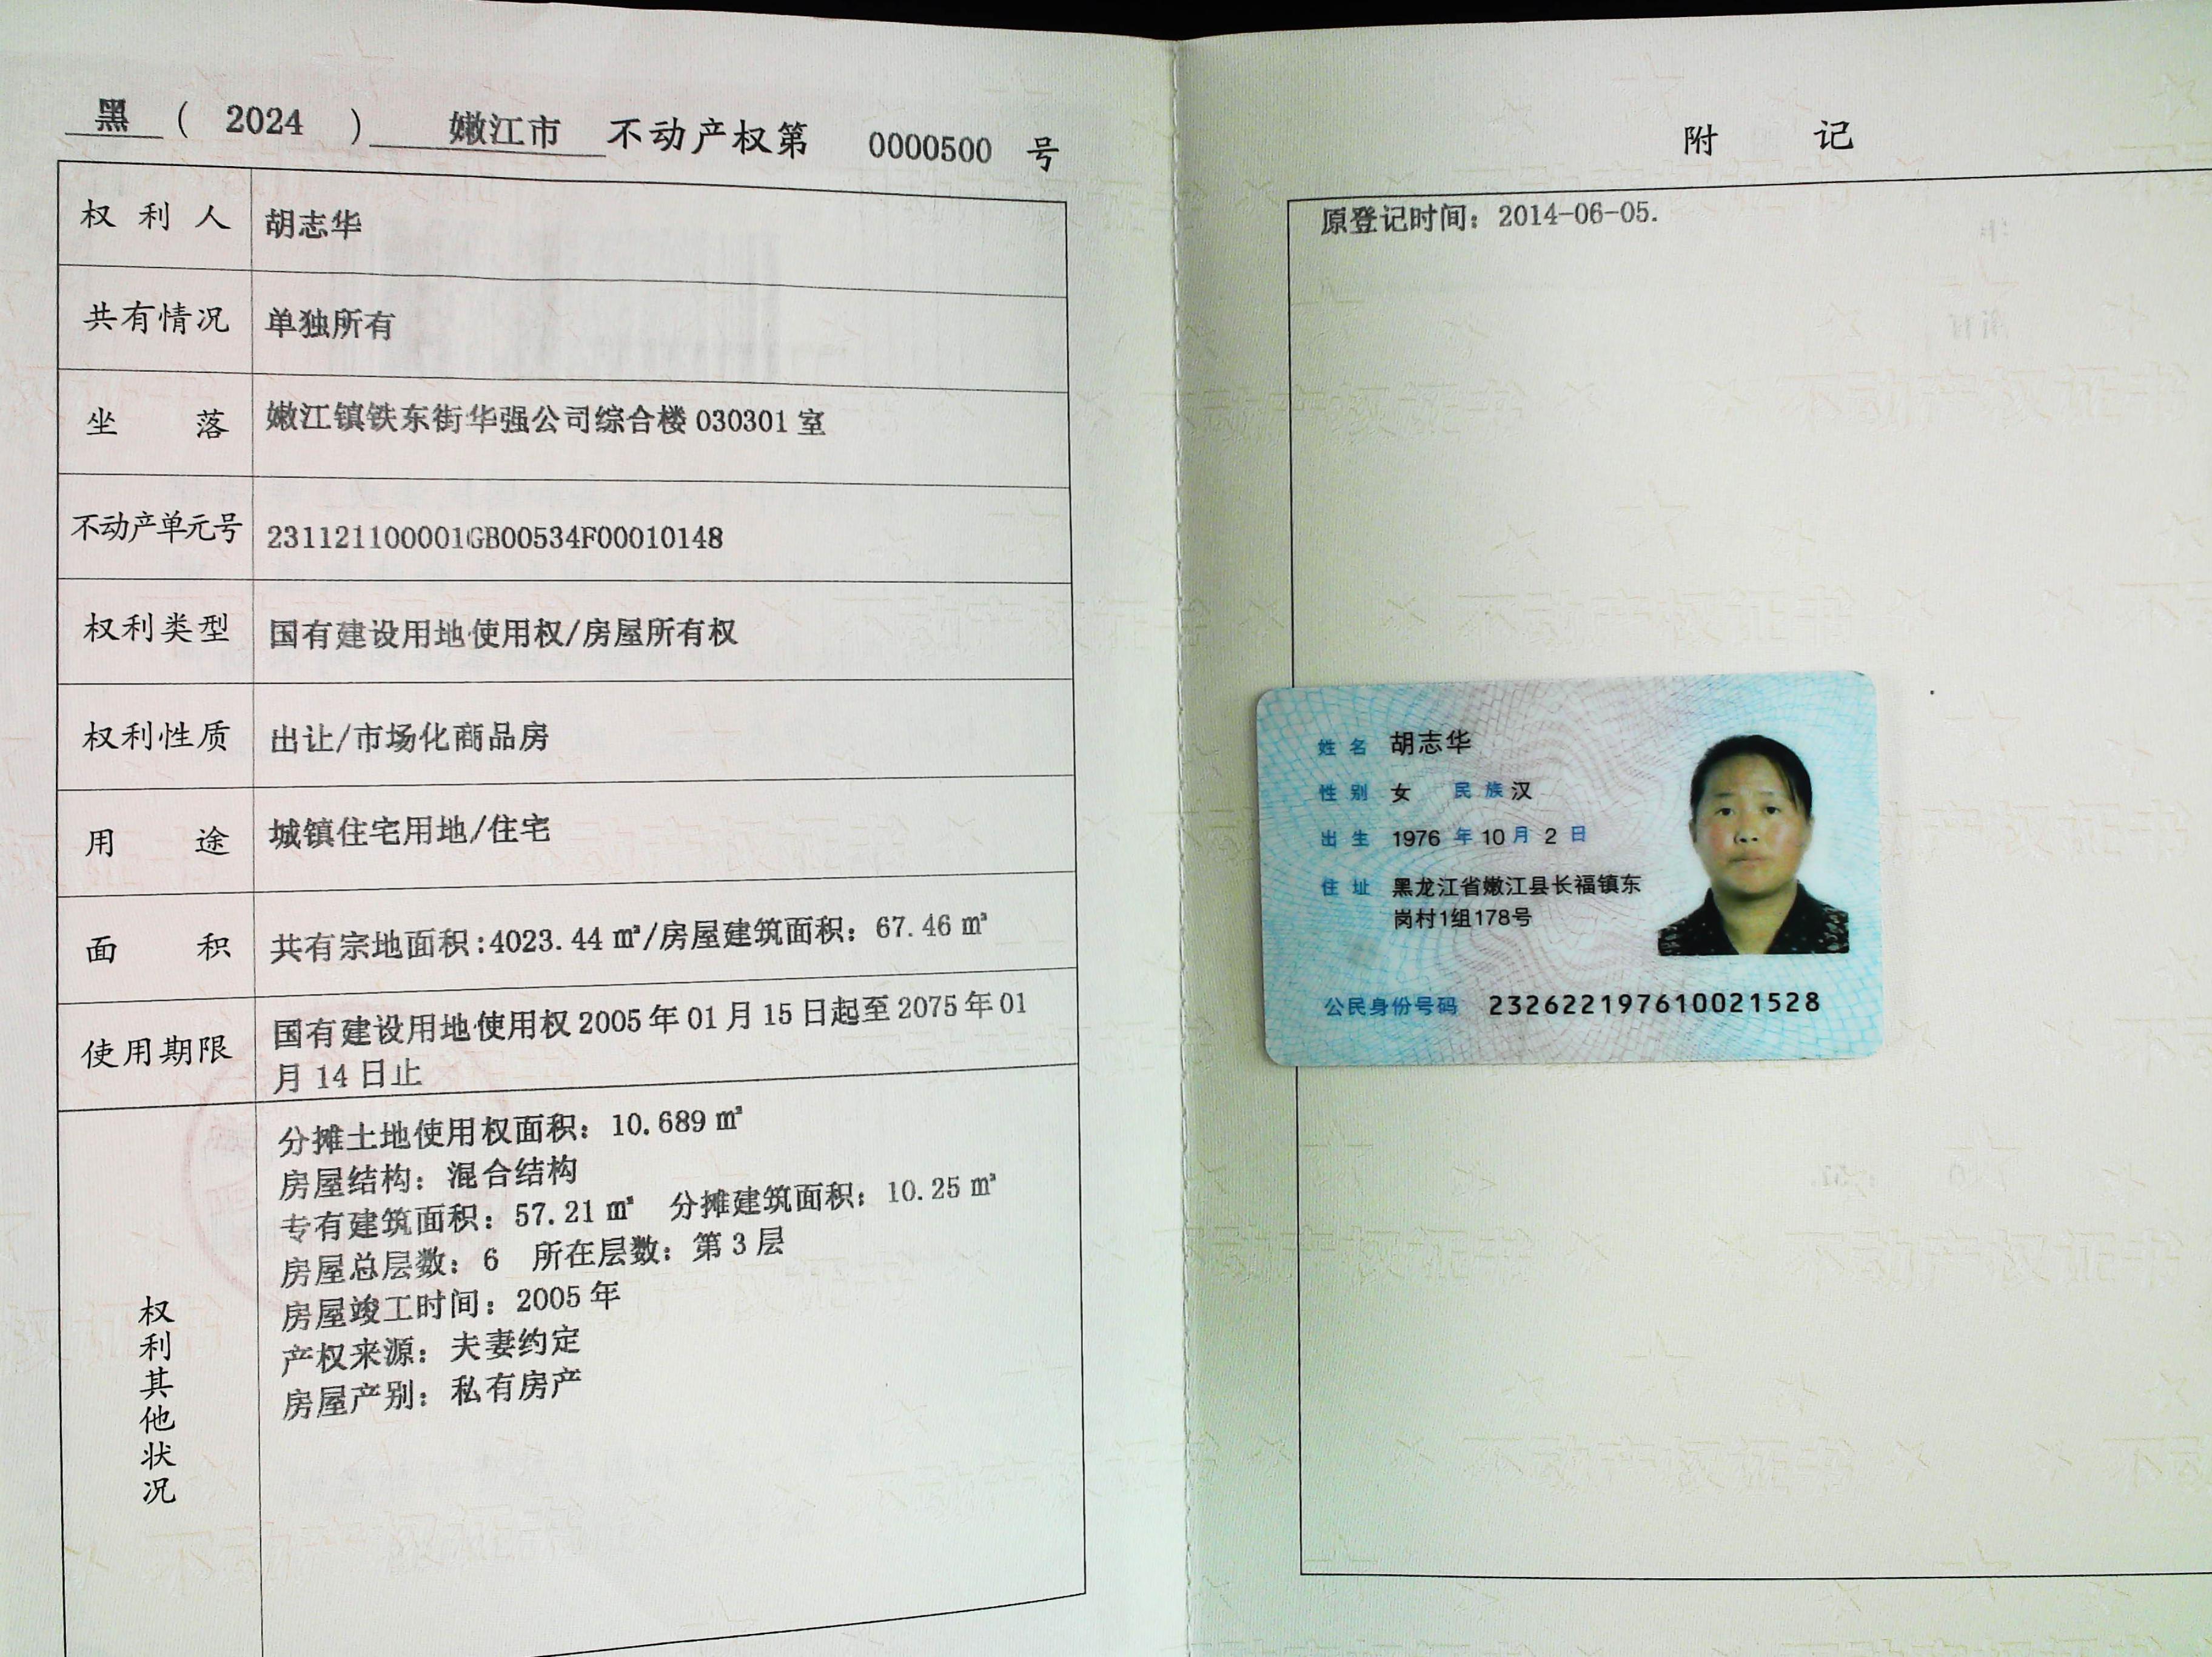 黑 ( 2024 ) 嫩江市 不动产权第 0000500 号
权利人 胡志华
共有情况 单独所有
坐落 嫩江镇铁东街华强公司综合楼 030301 室
不动产单元号 231121100001GB00534F00010148
权利类型 国有建设用地使用权/房屋所有权
权利性质 出让/市场化商品房
用途 城镇住宅用地/住宅
面积 共有宗地面积:4023.44 ㎡/房屋建筑面积：67.46 ㎡
使用期限 国有建设用地使用权 2005 年 01 月 15 日起至 2075 年 01
月 14 日止
权利其他状况
分摊土地使用权面积：10.689 ㎡
房屋结构：混合结构
专有建筑面积：57.21 ㎡ 分摊建筑面积：10.25 ㎡
房屋总层数：6 所在层数：第 3 层
房屋竣工时间：2005 年
产权来源：夫妻约定
房屋产别：私有房产
附 记
原登记时间：2014-06-05.
姓名 胡志华
性别 女 民族 汉
出生 1976 年 10 月 2 日
住址 黑龙江省嫩江县长福镇东
岗村1组178号
公民身份号码 232622197610021528